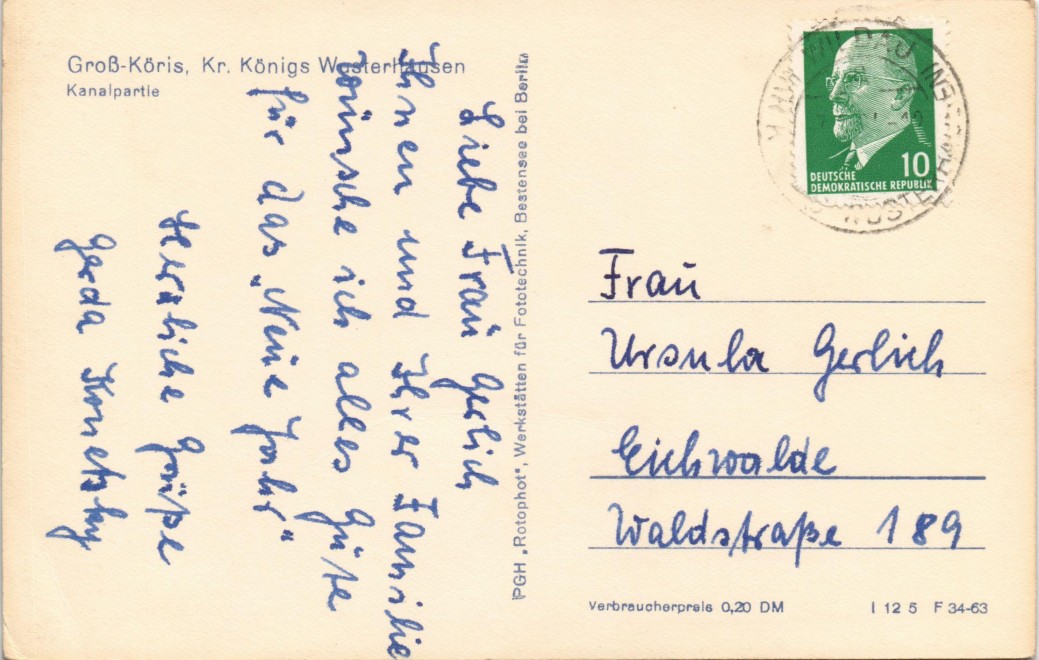 Groß-Köris, Kr. Königs Wusterhausen
Kanalpartie
Liebe Frau Gerlich
Ihnen und Ihrer Familie
wünsche ich alles Gute
für das „Neue Jahr"
Herzliche Grüße
Gerda
PGH „Rotophot", Werkstätten für Fototechnik, Bestensee bei Berlin
10
DEUTSCHE
DEMOKRATISCHE REPUBLIK
Frau
Ursula Gerlich
Eichwalde
Waldstraße 189
Verbraucherpreis 0,20 DM
I 12 5 F 34-63